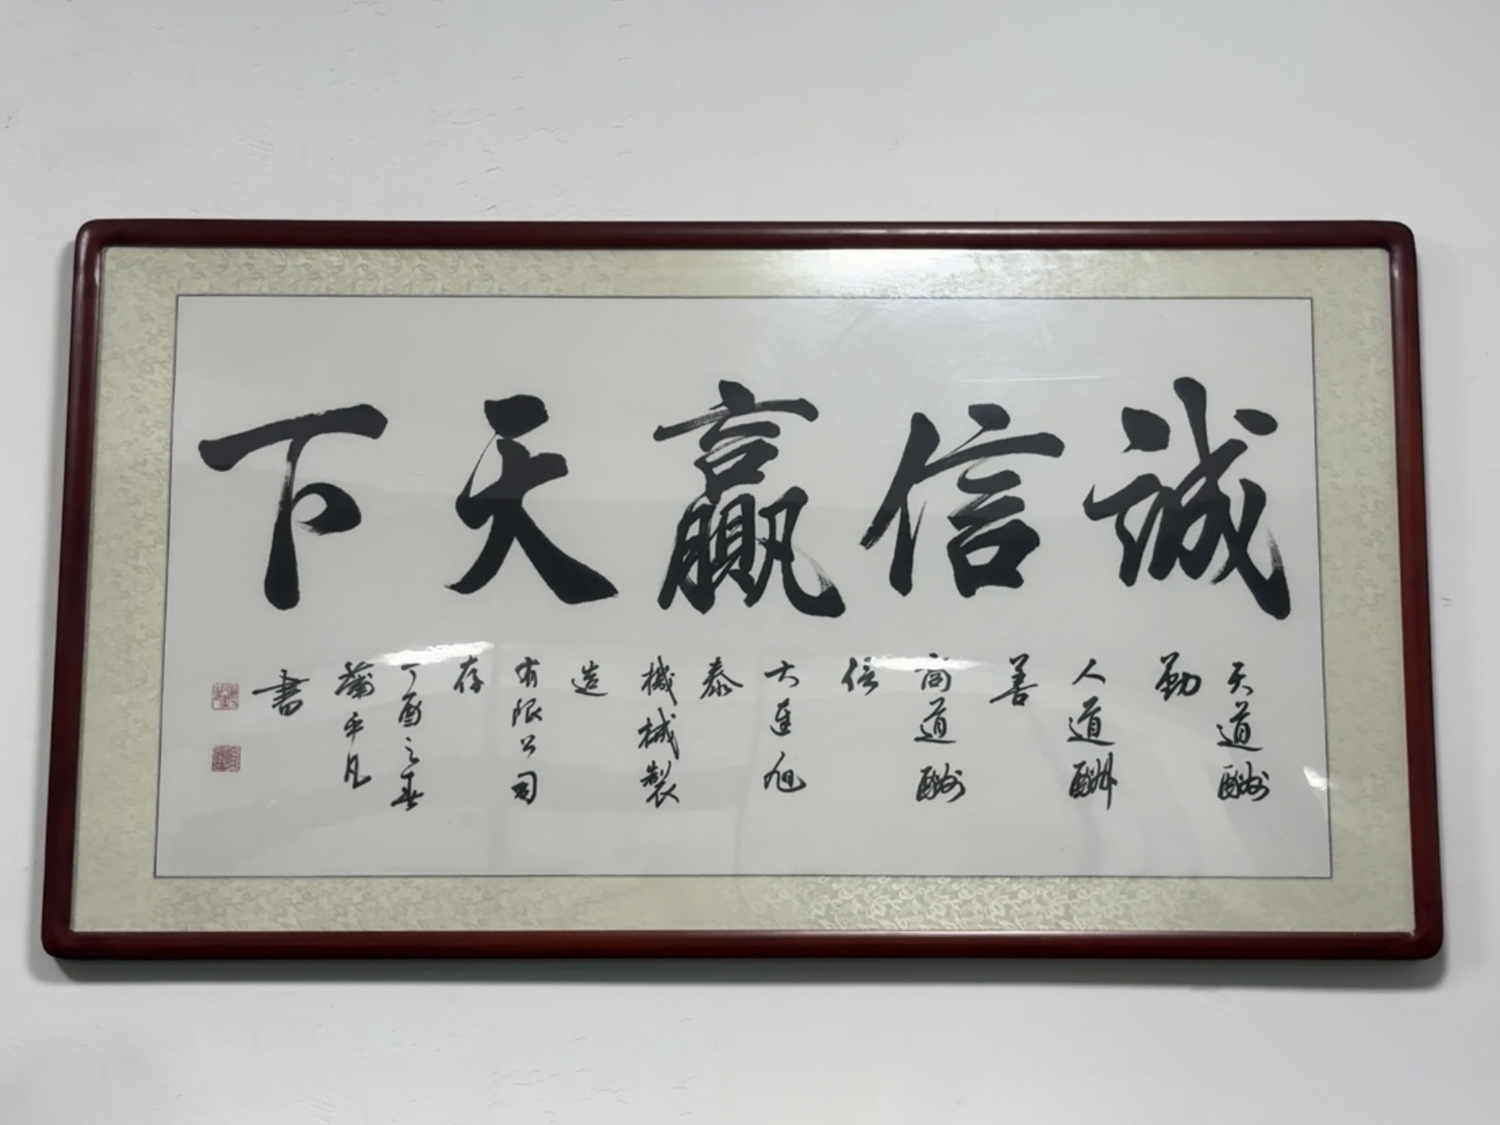 誠信贏天下
天道酬
勤
人道酬
善
商道酬
信
大連旭
泰
機械製
造
有限公司
存
丁酉之春
蒲平凡
書